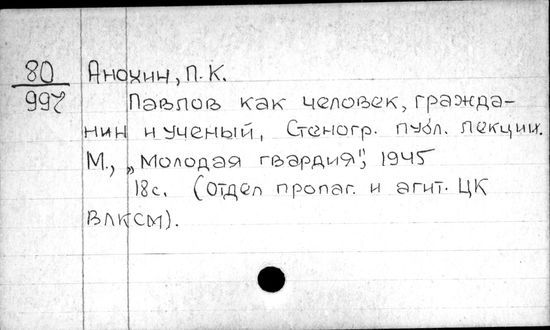 80 Анохин, П.К.
997 Павлов как человек, гражда-
нин и ученый, Стеногр. публ. лекции.
М., „Молодая гвардия", 1945
18 с. (Отдел пропаг. и агит. ЦК
ВЛКСМ).